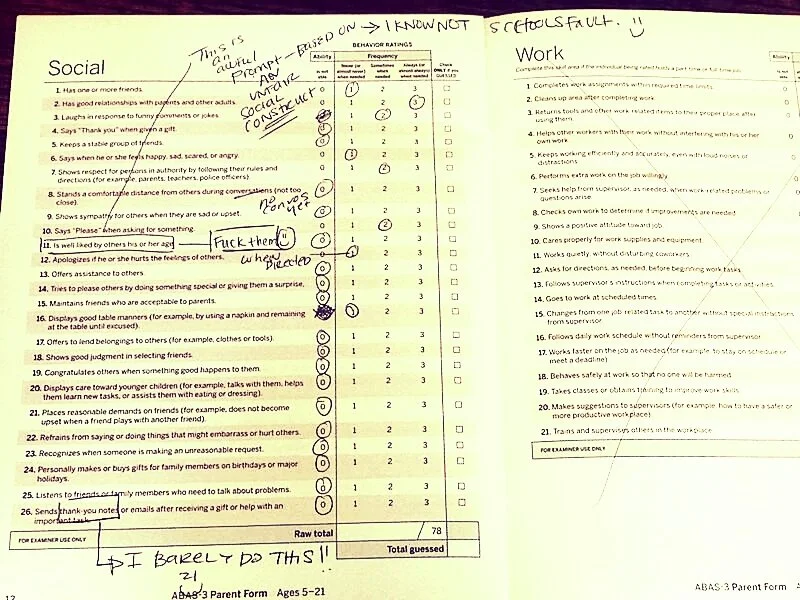 THIS IS
AN
AWFUL
PROMPT — BASED ON → I KNOW NOT SCHOOLS FAULT. :)
AN
UNFAIR
SOCIAL
CONSTRUCT
Social
BEHAVIOR RATINGS
Ability
Frequency
Is not able
Never (or almost never) when needed
Sometimes when needed
Always (or almost always) when needed
Check ONLY if you GUESSED
1. Has one or more friends. 0 1 2 3
2. Has good relationships with parents and other adults. 0 1 2 3
3. Laughs in response to funny comments or jokes. 1 2 3
4. Says "Thank you" when given a gift. 0 1 2 3
5. Keeps a stable group of friends. 0 1 2 3
6. Says when he or she feels happy, sad, scared, or angry. 0 1 2 3
7. Shows respect for persons in authority by following their rules and
directions (for example, parents, teachers, police officers). 0 1 2 3
8. Stands a comfortable distance from others during conversations (not too
close). 0 1 2 3
no convos yet
9. Shows sympathy for others when they are sad or upset. 0 1 2 3
10. Says "Please" when asking for something. 0 1 2 3
11. Is well liked by others his or her age. 0 1 2 3
Fuck them :)
12. Apologizes if he or she hurts the feelings of others. 0 1 2 3
when directed
13. Offers assistance to others. 0 1 2 3
14. Tries to please others by doing something special or giving them a surprise. 0 1 2 3
15. Maintains friends who are acceptable to parents. 0 1 2 3
16. Displays good table manners (for example, by using a napkin and remaining
at the table until excused). 1 2 3
17. Offers to lend belongings to others (for example, clothes or tools). 0 1 2 3
18. Shows good judgment in selecting friends. 0 1 2 3
19. Congratulates others when something good happens to them. 0 1 2 3
20. Displays care toward younger children (for example, talks with them, helps
them learn new tasks, or assists them with eating or dressing). 0 1 2 3
21. Places reasonable demands on friends (for example, does not become
upset when a friend plays with another friend). 0 1 2 3
22. Refrains from saying or doing things that might embarrass or hurt others. 0 1 2 3
23. Recognizes when someone is making an unreasonable request. 0 1 2 3
24. Personally makes or buys gifts for family members on birthdays or major
holidays. 0 1 2 3
25. Listens to friends or family members who need to talk about problems. 0 1 2 3
26. Sends thank-you notes or emails after receiving a gift or help with an
important task. 0 1 2 3
FOR EXAMINER USE ONLY
Raw total / 78
Total guessed
I BARELY DO THIS!!
21
12
ABAS-3 Parent Form Ages 5–21
Work
Complete this skill area if the individual being rated holds a part-time or full-time job.
Ability
Is not able
1. Completes work assignments within required time limits.
2. Cleans up area after completing work. 0
3. Returns tools and other work related items to their proper place after
using them. 0
4. Helps other workers with their work without interfering with his or her
own work. 0
5. Keeps working efficiently and accurately, even with loud noises or
distractions.
6. Performs extra work on the job willingly.
7. Seeks help from supervisor, as needed, when work related problems or
questions arise
8. Checks own work to determine if improvements are needed
9. Shows a positive attitude toward job
10. Cares properly for work supplies and equipment
11. Works quietly, without disturbing coworkers
12. Asks for directions, as needed, before beginning work tasks
13. Follows supervisor's instructions when completing tasks or activities
14. Goes to work at scheduled times
15. Changes from one job related task to another without special instructions
from supervisor
16. Follows daily work schedule without reminders from supervisor
17. Works faster on the job as needed (for example, to stay on schedule or
meet a deadline)
18. Behaves safely at work so that no one will be harmed
19. Takes classes or obtains training to improve work skills
20. Makes suggestions to supervisors (for example, how to have a safer or
more productive workplace)
21. Trains and supervises others in the workplace
FOR EXAMINER USE ONLY
ABAS-3 Parent Form A